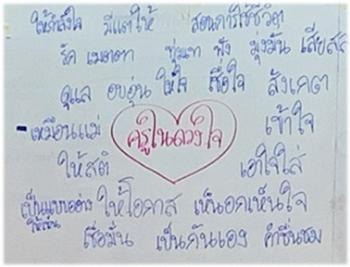 ให้กำลังใจ มีแต่ให้ สอนการใช้ชีวิต
รัก เมตตา ทุ่มเท ฟัง มุ่งมั่น เสียสละ
ดูแล อบอุ่น ให้ใจ เชื่อใจ สังเกต
-เหมือนแม่ ครูในดวงใจ เข้าใจ
ให้สติ เอาใจใส่
เป็นแบบอย่าง ให้โอกาส เห็นอกเห็นใจ
เชื่อมั่น เป็นกันเอง คำชื่นชม